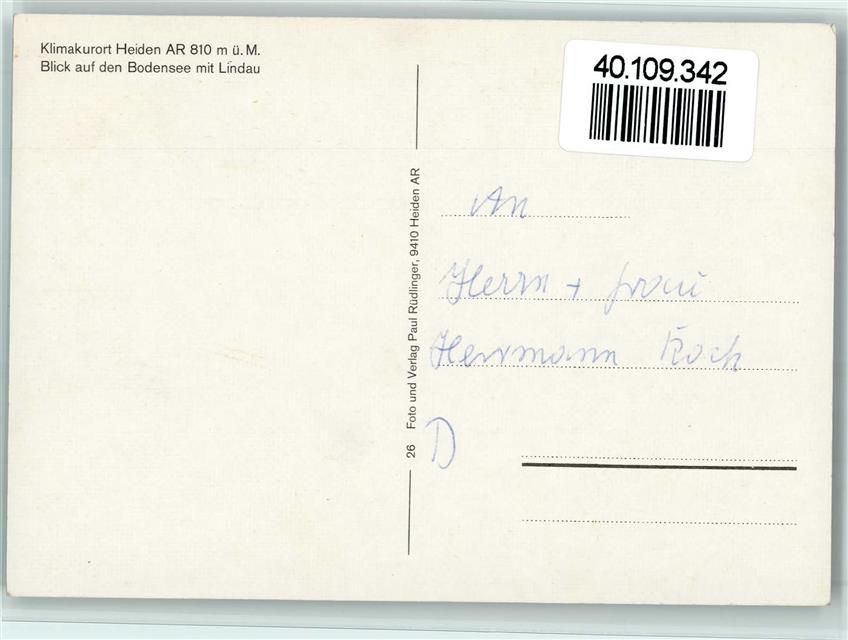 Klimakurort Heiden AR 810 m ü. M.
Blick auf den Bodensee mit Lindau
40.109.342
26 Foto und Verlag Paul Rüdlinger, 9410 Heiden AR
An
Herrn + Frau
Herrmann Koch
D